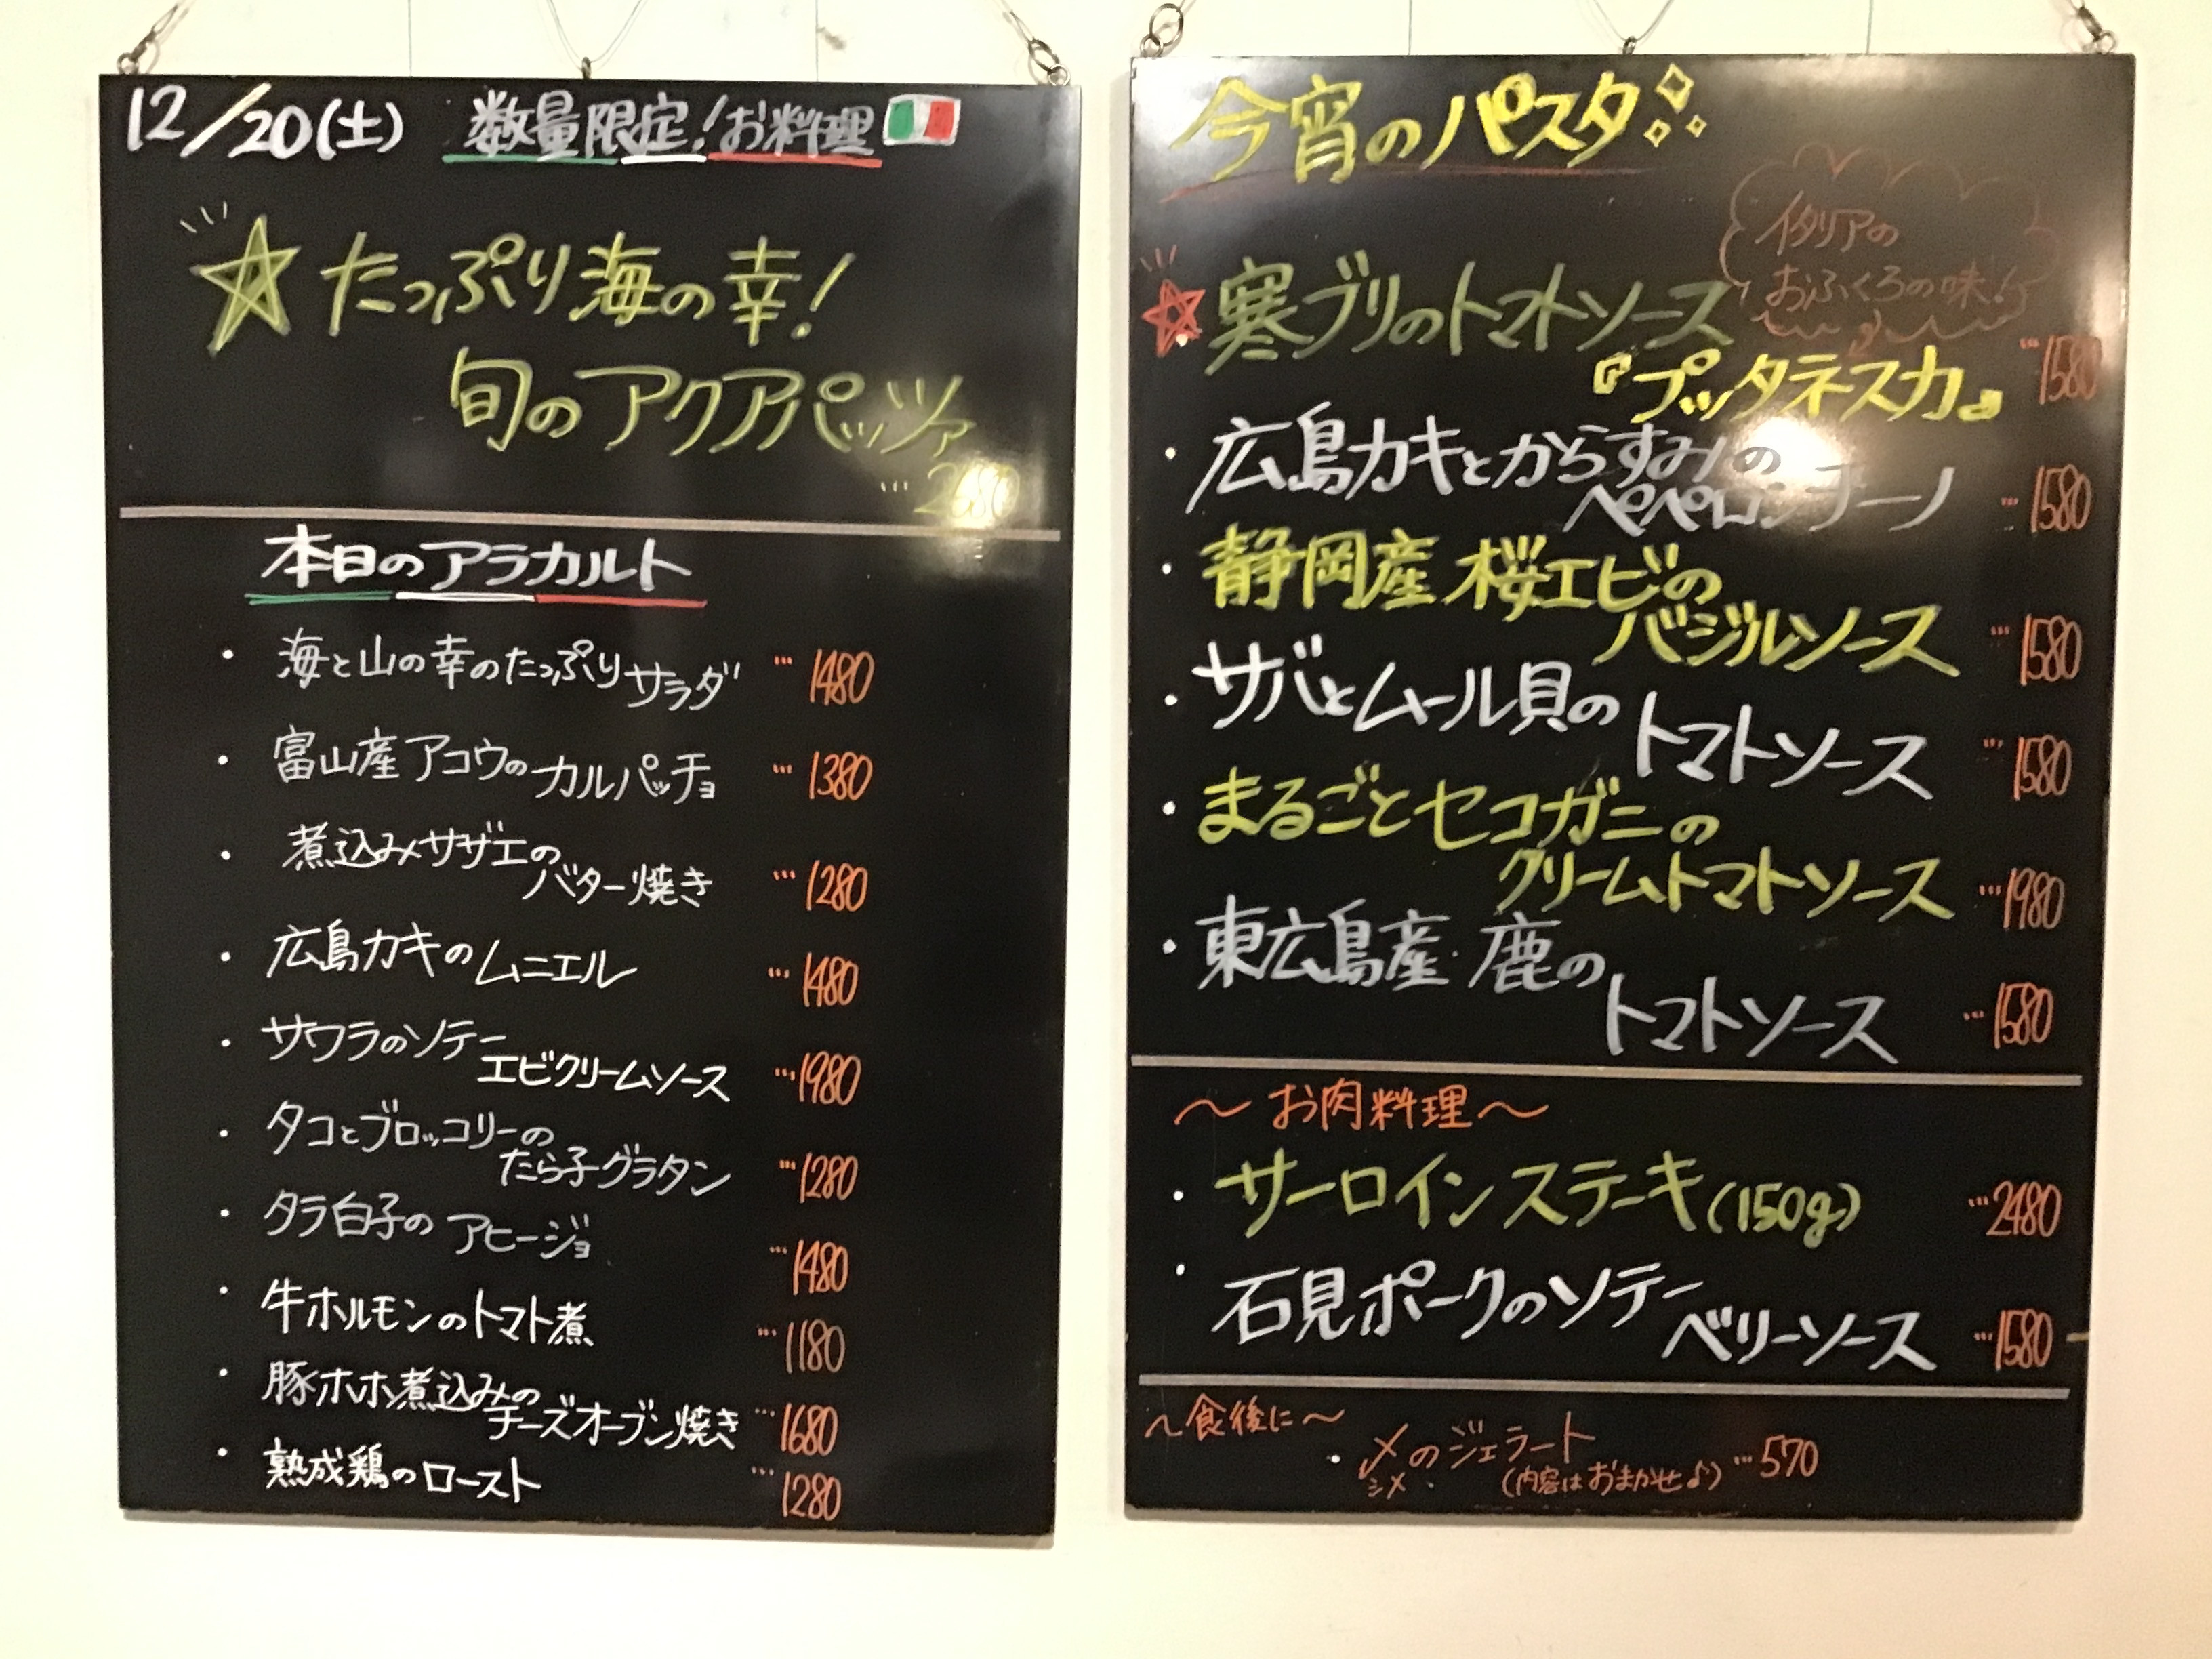 12/20(土) 数量限定!お料理
☆たっぷり海の幸!
旬のアクアパッツァ
… 2680
本日のアラカルト
・海と山の幸のたっぷりサラダ … 1480
・富山産アコウのカルパッチョ … 1380
・煮込みサザエの
バター焼き … 1280
・広島カキのムニエル … 1480
・サワラのソテー
エビクリームソース … 1980
・タコとブロッコリーの
たら子グラタン … 1280
・タラ白子のアヒージョ … 1480
・牛ホルモンのトマト煮 … 1180
・豚ホホ煮込みの
チーズオーブン焼き … 1680
・熟成鶏のロースト … 1280
今宵のパスタ
イタリアの
おふくろの味!
☆寒ブリのトマトソース
『プッタネスカ』 … 1580
・広島カキとからすみの
ペペロンチーノ … 1580
・静岡産 桜エビの
バジルソース … 1580
・サバとムール貝の
トマトソース … 1580
・まるごとセコガニの
クリームトマトソース … 1980
・東広島産・鹿の
トマトソース … 1580
～お肉料理～
・サーロインステーキ(150g) … 2480
・石見ポークのソテー
ベリーソース … 1580
～食後に～
・〆のジェラート
シメ (内容はおまかせ♪) … 570